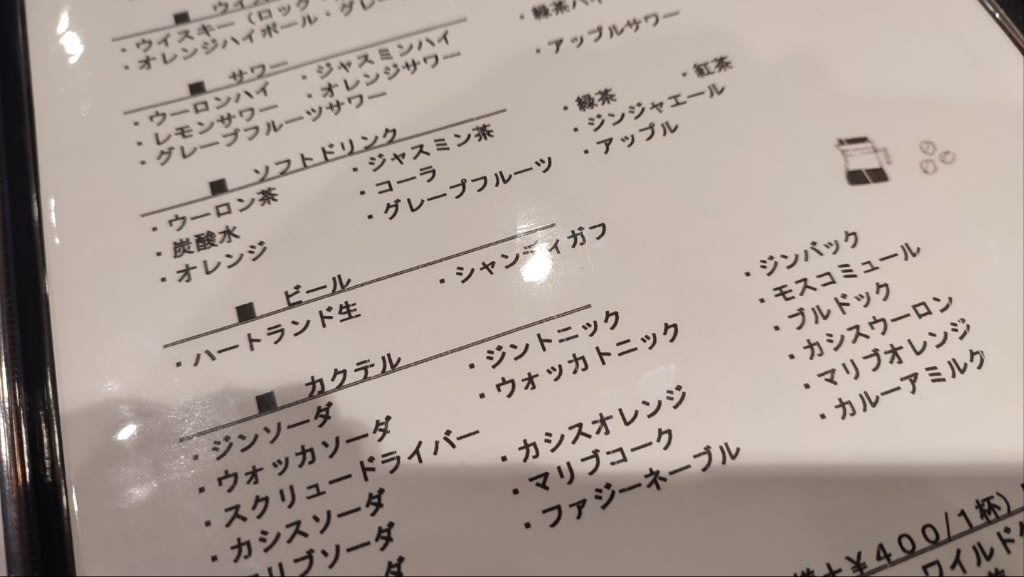 ■ ウイス
・ウイスキー（ロック
・オレンジハイボール・グレ
・緑茶ハイ
■ サワー
・ウーロンハイ ・ジャスミンハイ
・レモンサワー ・オレンジサワー ・アップルサワー
・グレープフルーツサワー
■ ソフトドリンク
・ウーロン茶 ・ジャスミン茶 ・緑茶 ・紅茶
・炭酸水 ・コーラ ・ジンジャエール
・オレンジ ・グレープフルーツ ・アップル
■ ビール
・ハートランド生 ・シャンディガフ
■ カクテル
・ジンソーダ ・ジントニック ・ジンバック
・ウォッカソーダ ・ウォッカトニック ・モスコミュール
・スクリュードライバー ・ブルドック
・カシスソーダ ・カシスオレンジ ・カシスウーロン
マリブソーダ ・マリブコーク ・マリブオレンジ
ダ ・ファジーネーブル ・カルーアミルク
￥４００/１杯）
ワイルド